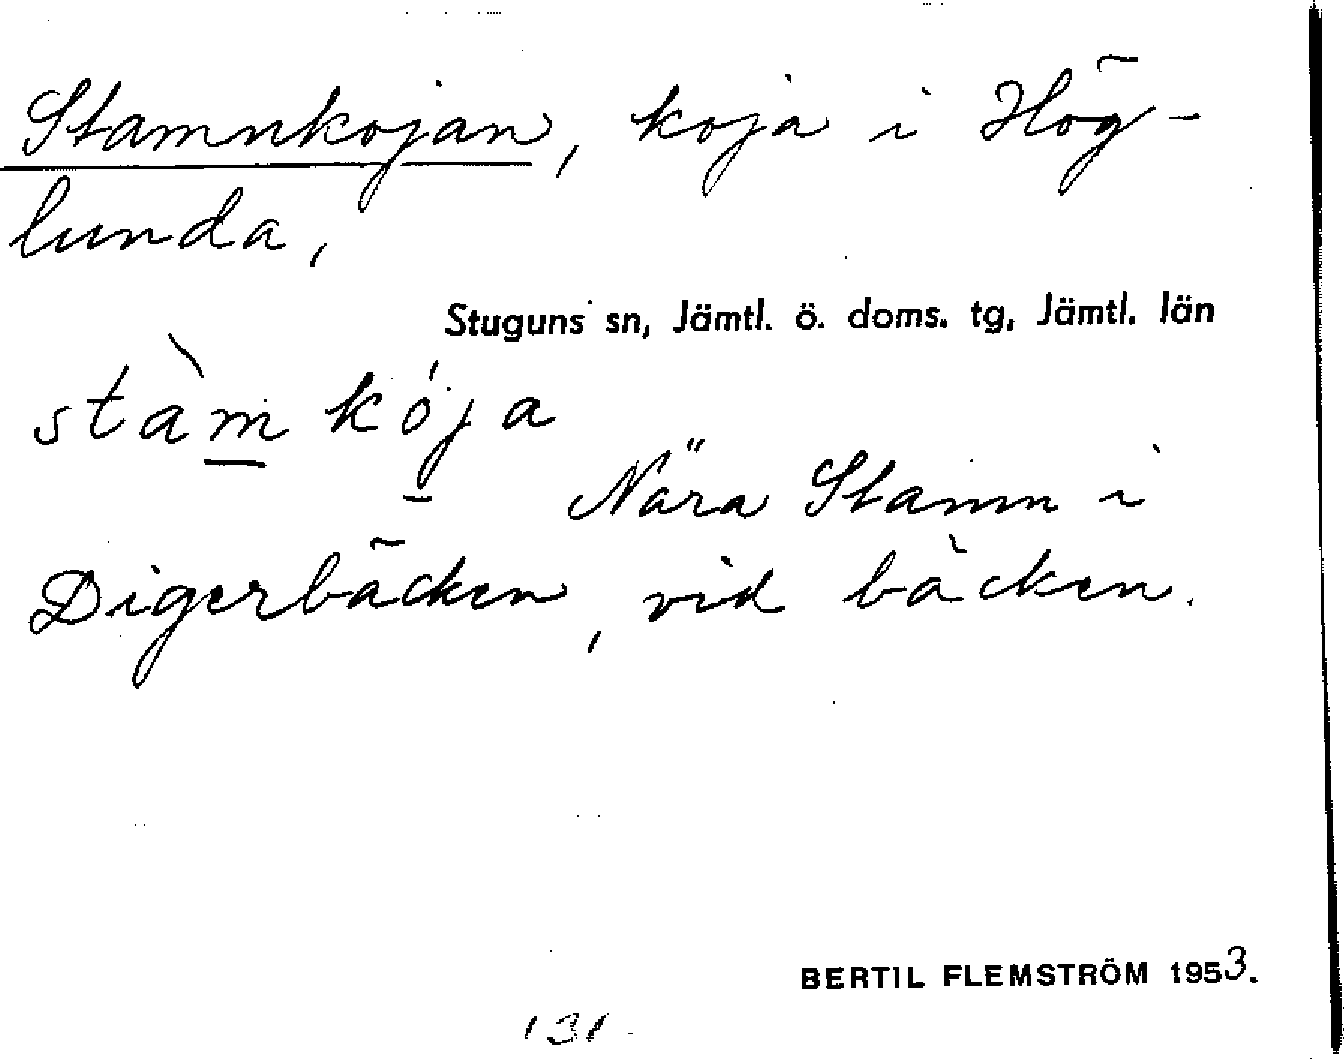 Stamnkojan, koja i Hög-
lunda,
Stuguns sn, Jämtl. ö. doms. tg, Jämtl. län
stàm kója
Nära Stamn i
Digerbäcken, vid bäcken.
BERTIL FLEMSTRÖM 1953.
131